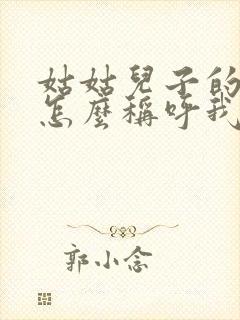 姑姑兒子的
怎麼稱呼我
郭小念